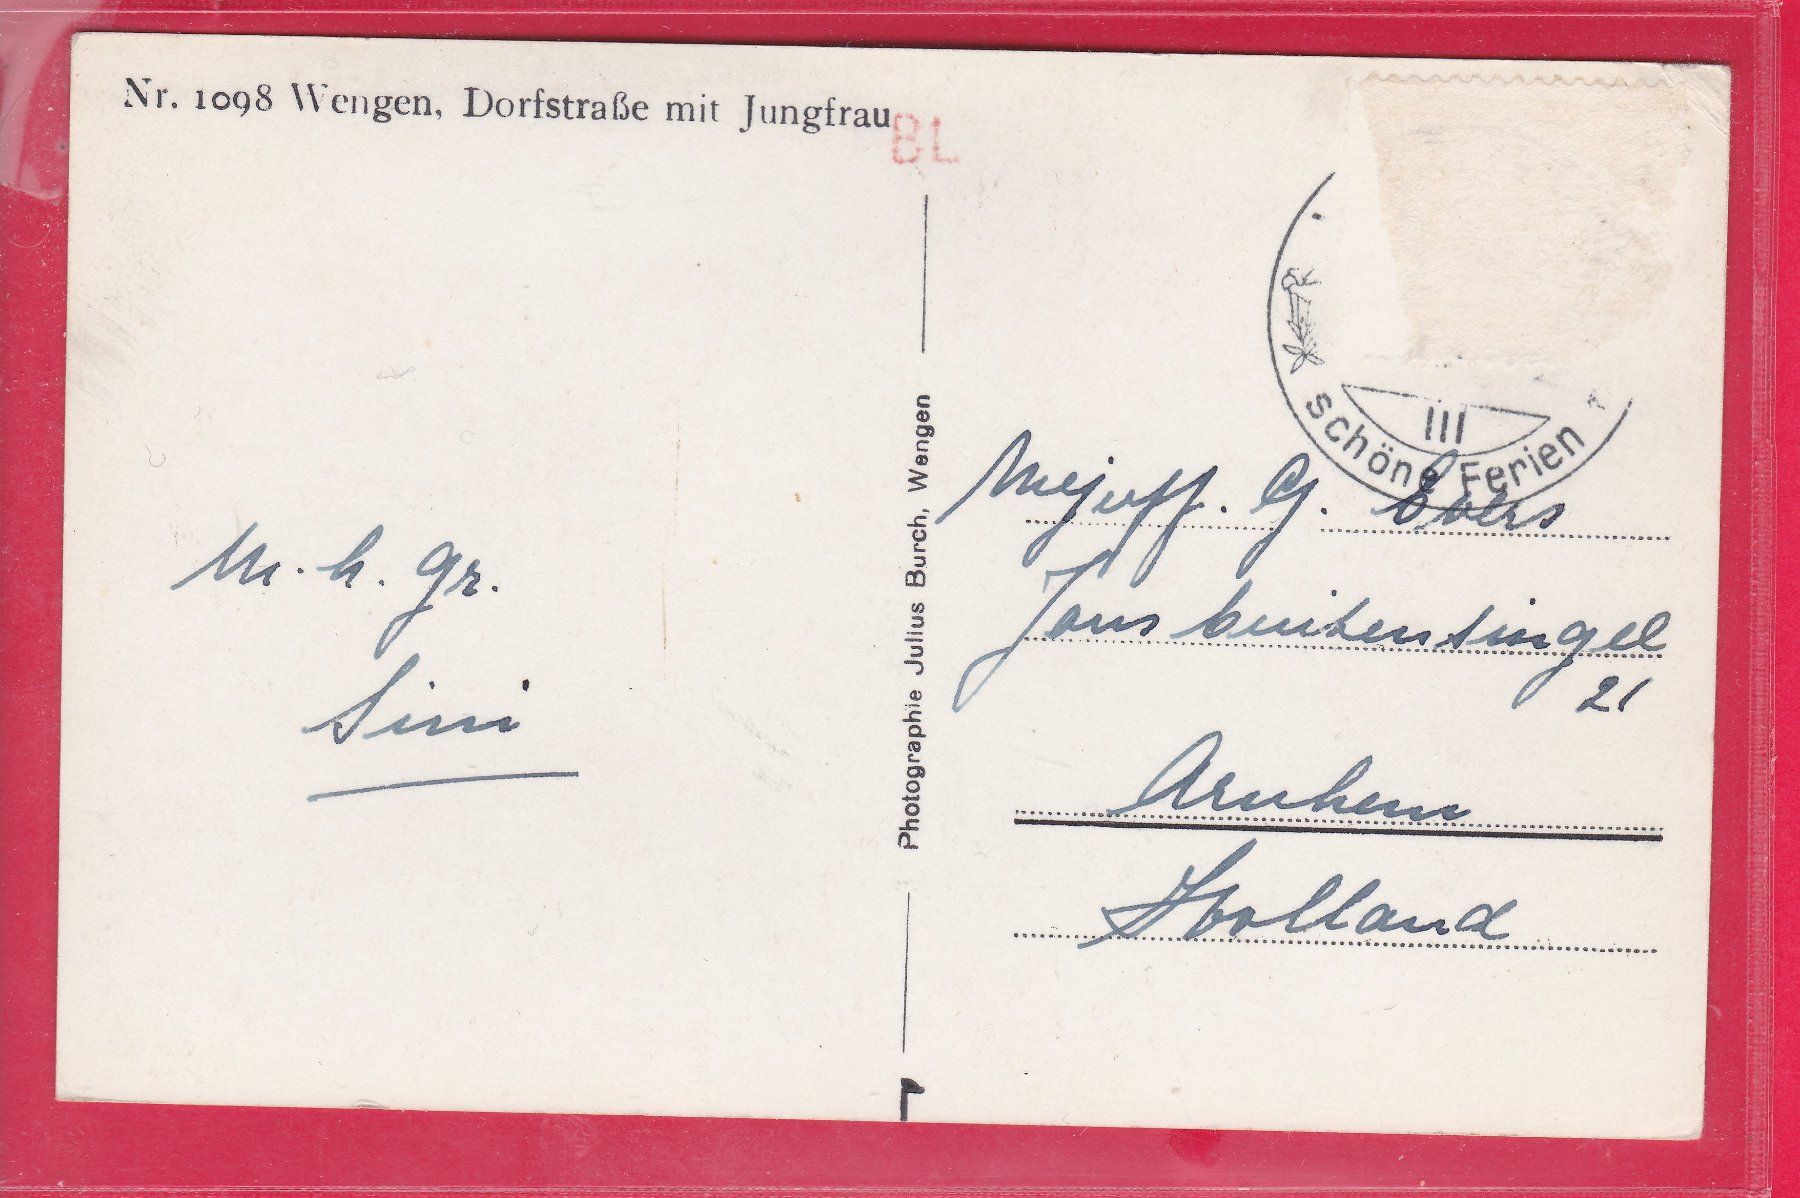 Nr. 1098 Wengen, Dorfstraße mit Jungfrau
BL
M. h. gr.
Sini
Photographie Julius Burch, Wengen
III
schöne Ferien
Mejuff. G. Evers
Jans buitensingel
21
Arnhem
Holland